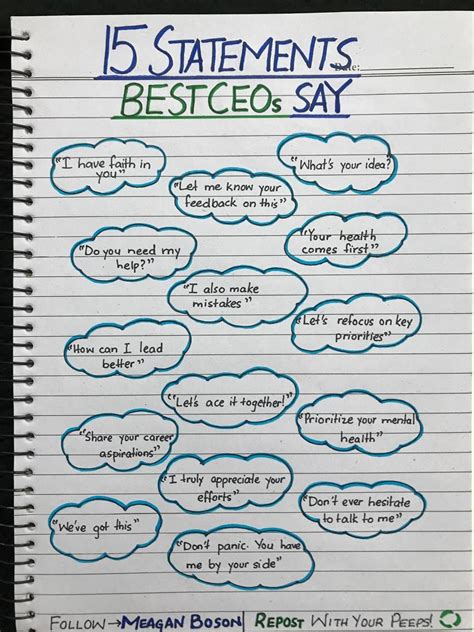 15 STATEMENTS
Date:
BEST CEOs SAY
"I have faith in
you"
"What's your idea?
"Let me know your
feedback on this"
"Your health
comes first"
"Do you need my
help?"
"I also make
mistakes"
"Let's refocus on key
priorities"
"How can I lead
better"
"Let's ace it together!"
"Prioritize your mental
health"
"Share your career
aspirations"
"I truly appreciate your
efforts"
"Don't ever hesitate
to talk to me"
"We've got this"
"Don't panic. You have
me by your side"
FOLLOW→MEAGAN BOSON| REPOST WITH YOUR PEEPS!